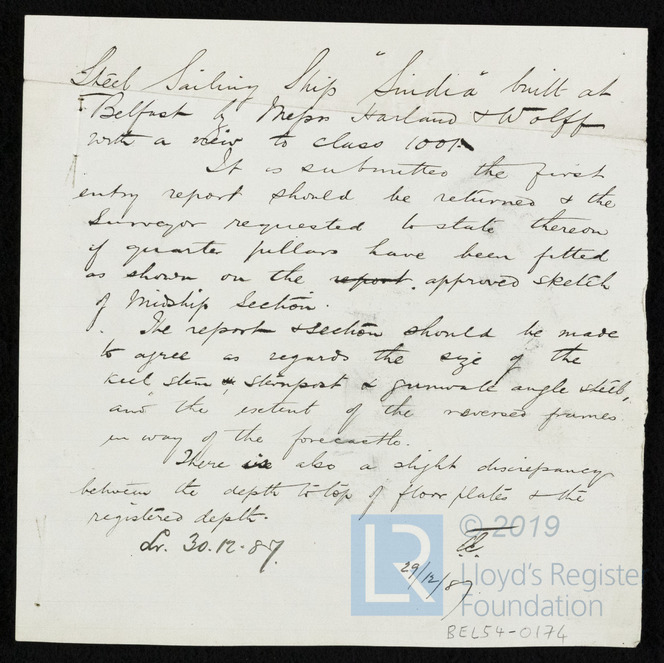 Steel Sailing Ship "Sindia" built at
Belfast by Messrs Harland & Wolff
with a view to class 100A
It is submitted the first
entry report should be returned & the
Surveyor requested to state thereon
if quarter pillars have been fitted
as shown on the report approved sketch
of Midship Section.
The report & section should be made
to agree as regards the size of the
keel, stem, sternpost & gunwale angle steel,
and the extent of the reversed frames
in way of the forecastle.
There is also a slight discrepancy
between the depth to top of floor plates & the
registered depth.
Lr. 30.12.87.
29/12/87
© 2019
LR
Lloyd's Register
Foundation
BEL54-0174